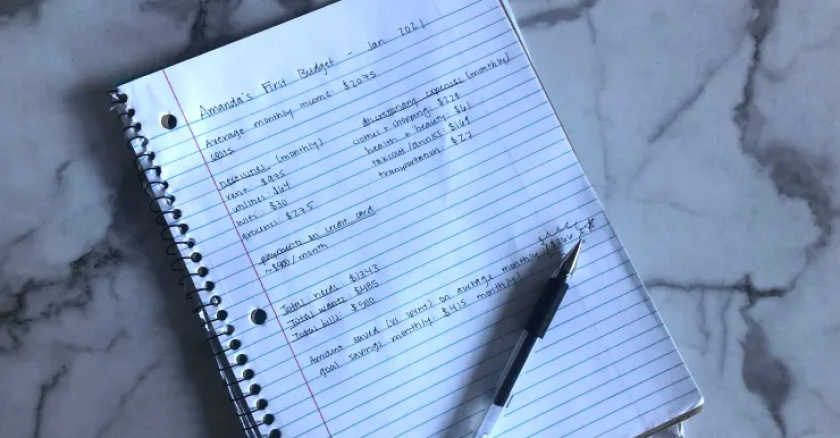 Amanda's First Budget - Jan 2021
Average monthly income: $2075
costs
necessities (monthly)
rent: $975
utilities: $64
wifi: $30
groceries: $275
discretionary expenses (monthly)
clothes + shopping: $228
health + beauty: $61
takeout/drinks: $169
transportation: $27
payments on credit card
~$400/month
Total needs: $1343
Total wants: $485
Total bills: $500
Amount saved (vs spent) on average monthly:
goal savings monthly: $415 monthly!